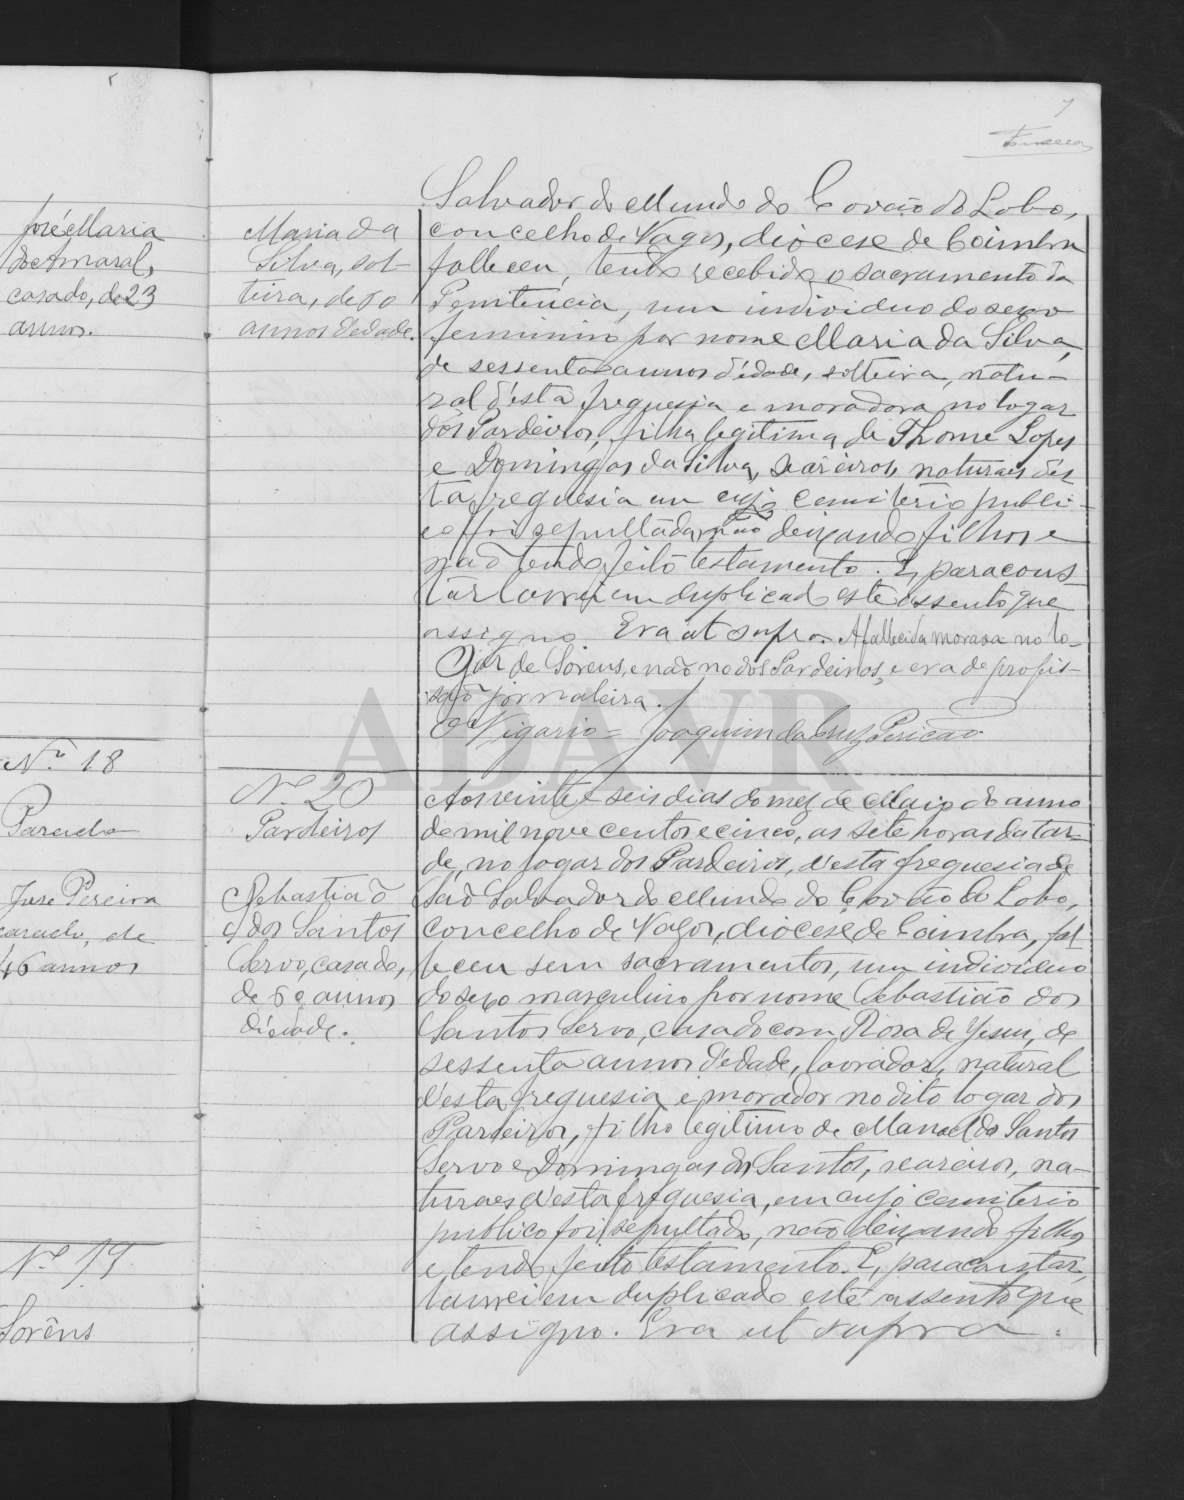 7
Fonseca
José Maria
do Amaral,
casado, de 23
annos.
Nº 18
Parada
José Pereira
casado, de
46 annos
Nº 19
Sorêns
Maria da
Silva, sol-
teira, de 60
annos d'edade.
Salvador do Mundo do Covão do Lobo,
concelho de Vagos, diocese de Coimbra
falleceu, tendo recebido o sacramento da
Penitencia, um individuo do sexo
feminino por nome Maria da Silva,
de sessenta annos d'edade, solteira, natu-
ral d'esta freguesia e moradora no logar
dos Pardeiros, filha legitima de Thomé Lopes
e Domingas da Silva, seareiros, naturaes d'es
ta freguesia em cujo cemiterio publi-
co foi sepultada, não deixando filhos e
não tendo feito testamento. E, para cons
tar lavrei em duplicado este assento que
assigno. Era ut supra. A fallecida morava no lo-
gar de Sorens, e não no dos Pardeiros, e era de profis-
são jornaleira.
O Vigario = Joaquim da Cruz Pericão
Nº 20
Pardeiros
Sebastião
dos Santos
Servo, casado,
de 60 annos
d'edade.
Aos vinte e seis dias do mez de Maio do anno
de mil nove centos e cinco, as sete horas da tar-
de, no logar dos Pardeiros, d'esta freguesia de
São Salvador do Mundo do Covão do Lobo,
concelho de Vagos, diocese de Coimbra, fal
leceu sem sacramentos, um individuo
do sexo masculino por nome Sebastião dos
Santos Servo, casado com Rosa de Jesus, de
sessenta annos d'edade, lavrador, natural
d'esta freguesia e morador no dito logar dos
Pardeiros, filho legitimo de Manoel dos Santos
Servo e Domingas dos Santos, seareiros, na-
turaes d'esta freguesia, em cujo cemiterio
publico foi sepultado, não deixando filhos
e, tendo feito testamento. E, para constar,
lavrei em duplicado este assento que
assigno. Era ut supra.
ADAVR